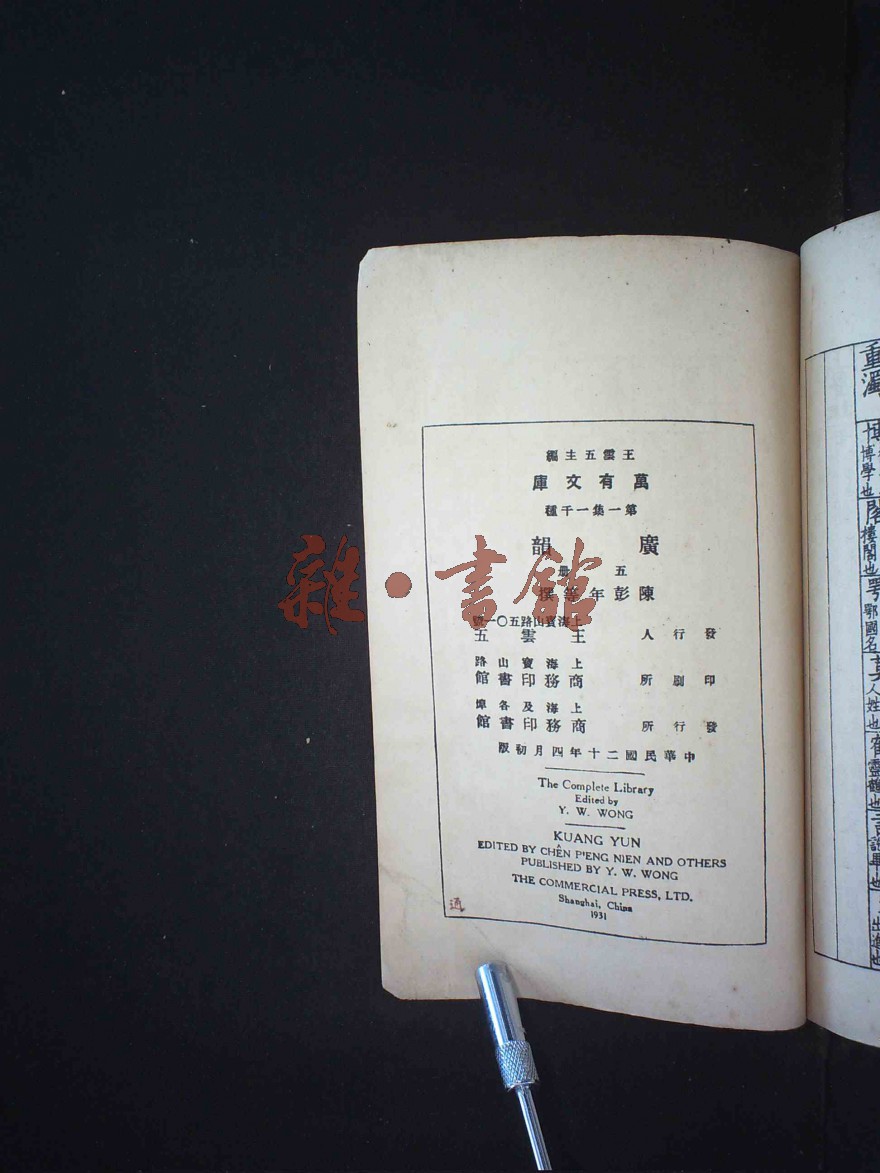 王雲五主編
萬有文庫
第一集一千種
廣韻
五冊
陳彭年等撰
上海寶山路五〇一號
發行人 王雲五
上海寶山路
印刷所 商務印書館
上海及各埠
發行所 商務印書館
中華民國二十年四月初版
The Complete Library
Edited by
Y. W. WONG
KUANG YUN
EDITED BY CHÊN P'ENG NIEN AND OTHERS
PUBLISHED BY Y. W. WONG
THE COMMERCIAL PRESS, LTD.
Shanghai, China
1931
雜·書館
重濁
博學也
閣樓閣也
鄂國名
人姓也
出進也